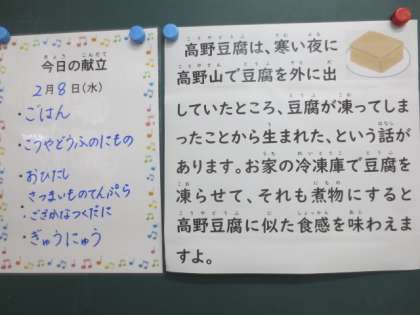 今日の献立
2月8日(水)
・ごはん
・こうやどうふのにもの
・おひたし
・さつまいものてんぷら
・こざかなつくだに
・ぎゅうにゅう
高野豆腐は、寒い夜に
高野山で豆腐を外に出
していたところ、豆腐が凍ってしま
ったことから生まれた、という話が
あります。お家の冷凍庫で豆腐を
凍らせて、それも煮物にすると
高野豆腐に似た食感を味わえま
すよ。